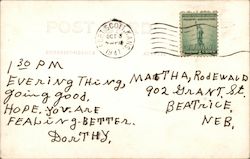 POST CARD
OCT 3
1941
1 30 PM
EVERING THING,
going good.
HOPE. YOU ARE
FEALING-BETTER.
DORTHY,
MARTHA, RODEWALD
902 GRANT. ST.
BEATRICE,
NEB,